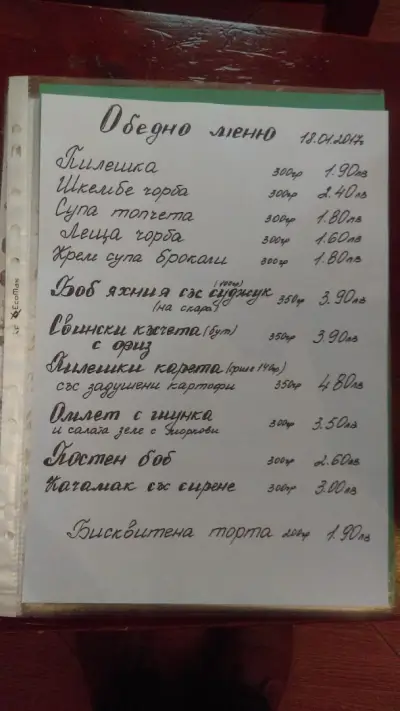 Обедно меню 18.01.2017г
Пилешка 300гр 1.90лв
Шкембе чорба 300гр 2.40лв
Супа топчета 300гр 1.80лв
Леща чорба 300гр 1.60лв
Крем супа броколи 300гр 1.80лв
Боб яхния със суджук 350гр 3.90лв
(на скара)
Свински късчета (бут) 350гр 3.90лв
с ориз
Пилешки карета
със задушени картофи 350гр 4.80лв
Омлет с шунка
и салата зеле с моркови 300гр 3.50лв
Постен боб 300гр 2.60лв
Качамак със сирене 300гр 3.00лв
Бисквитена торта 200гр 1.90лв
EcoMax